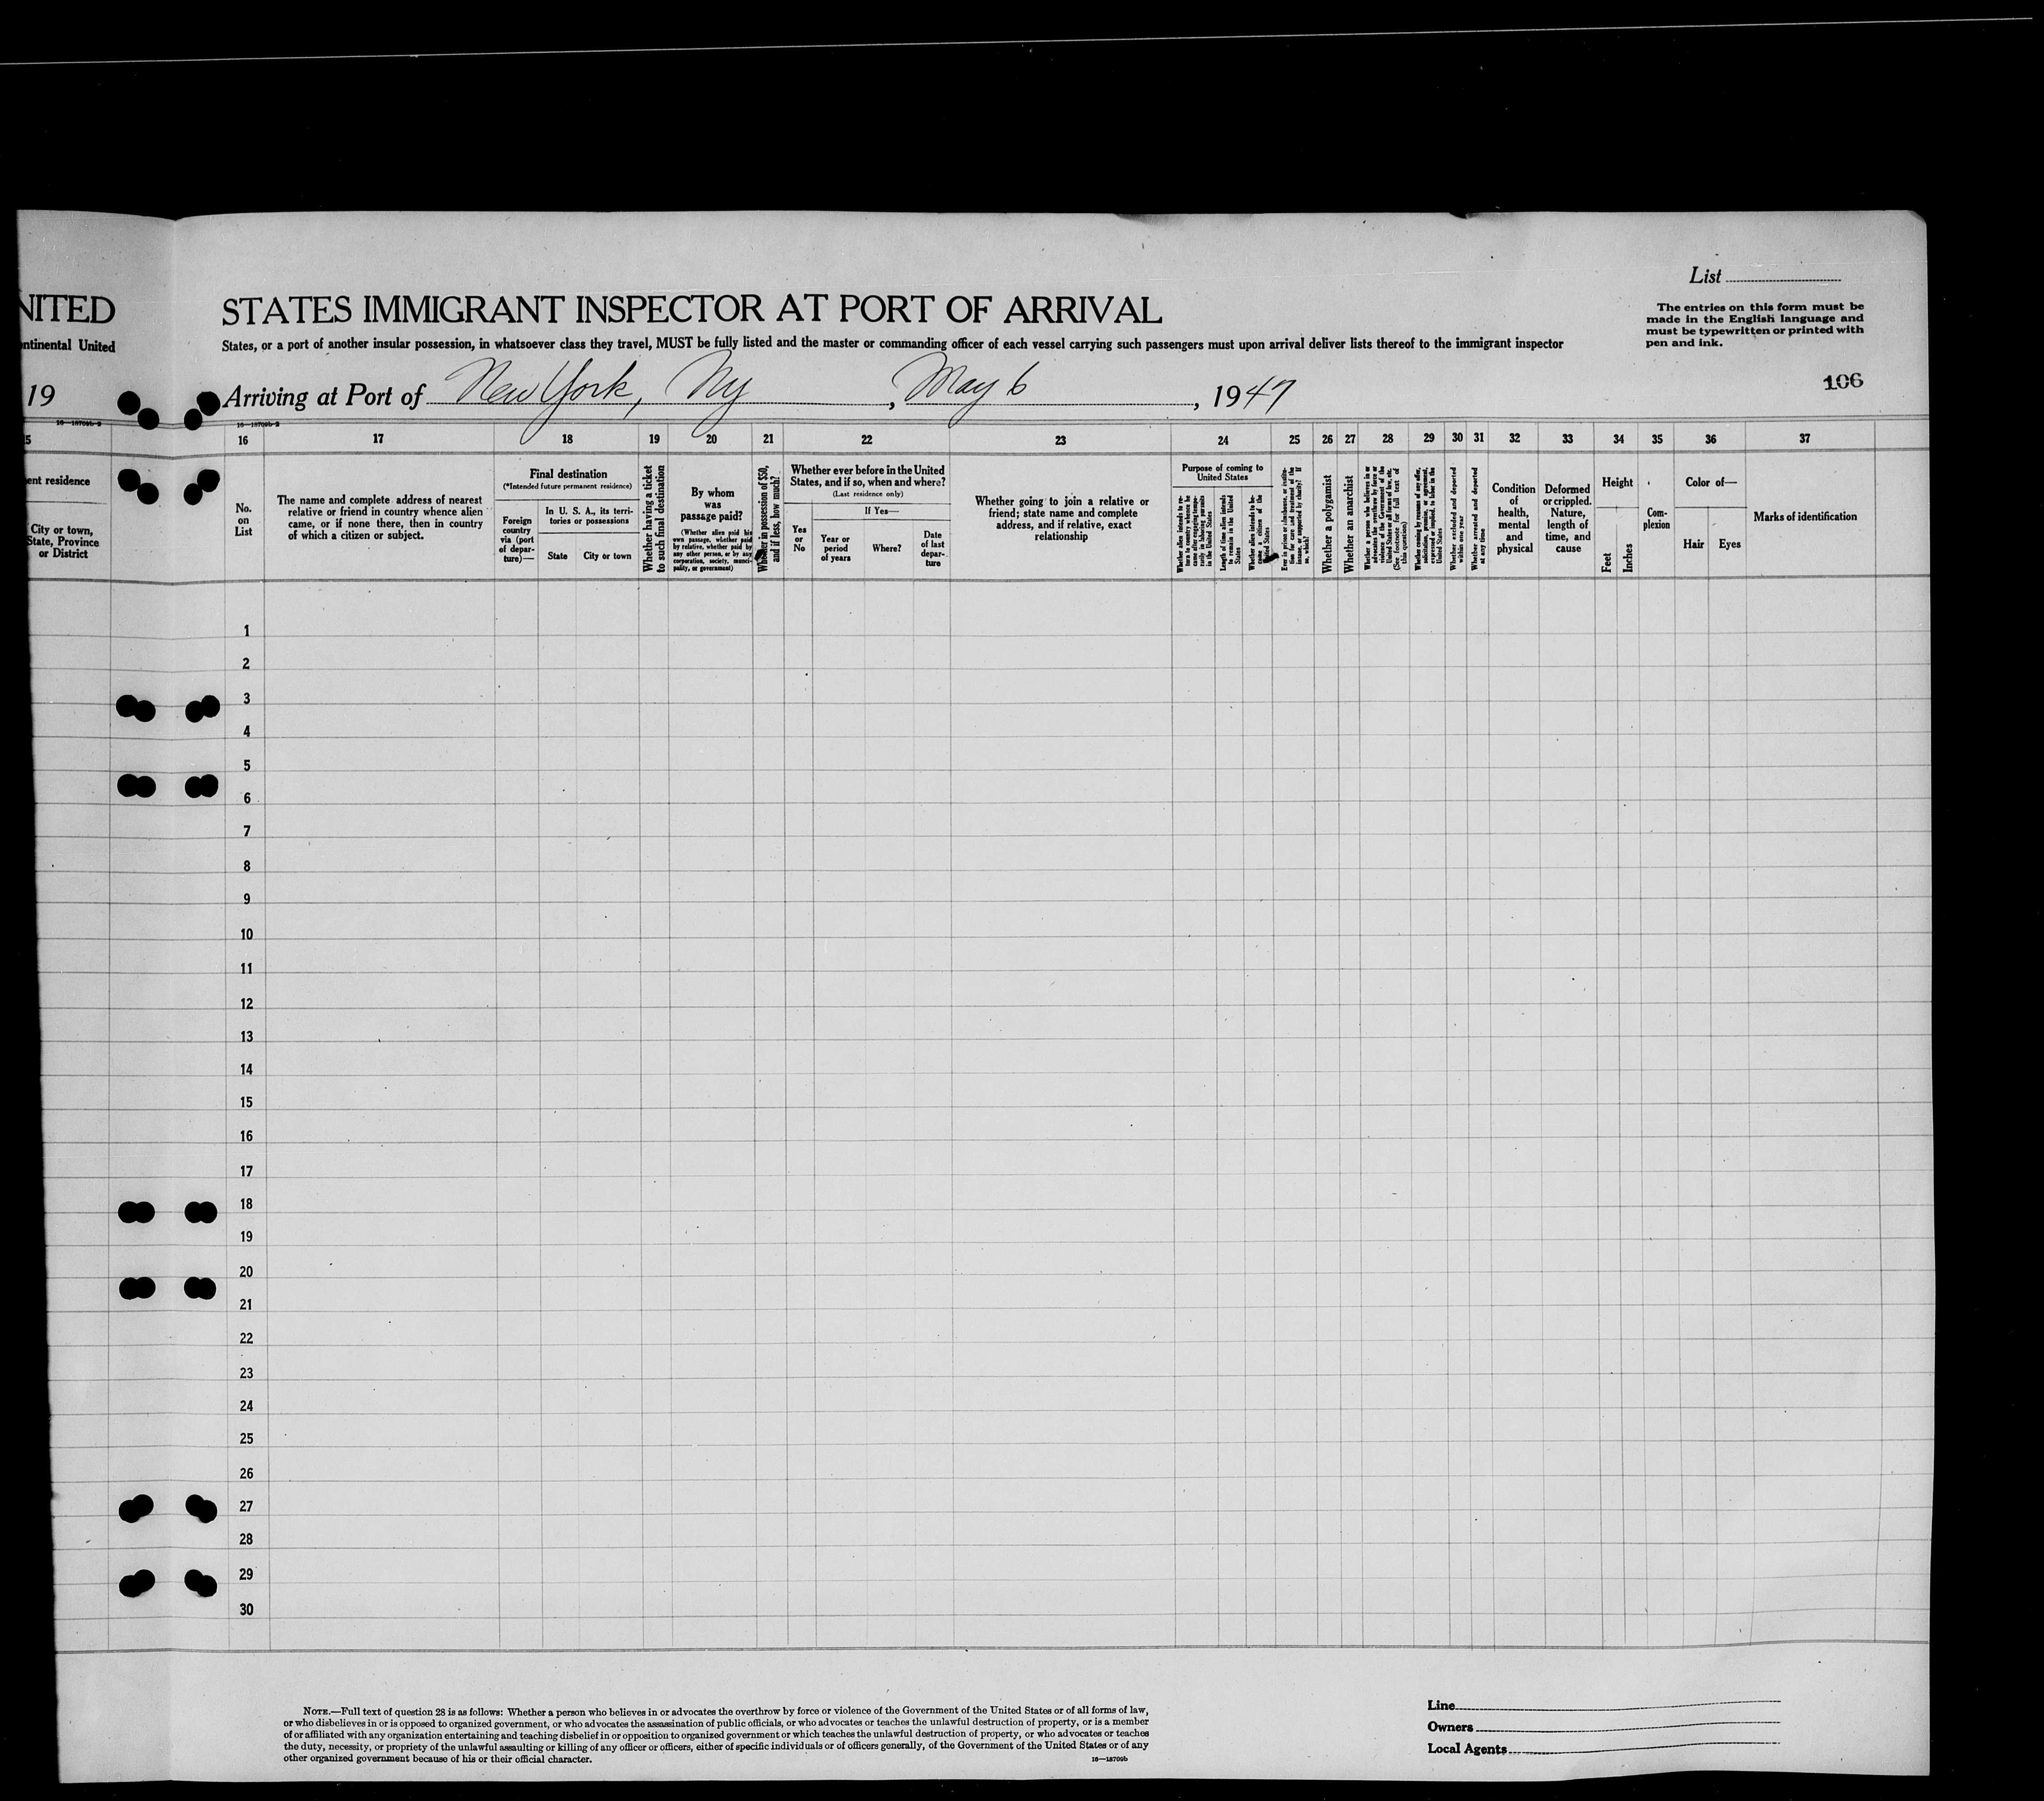 List
NITED
STATES IMMIGRANT INSPECTOR AT PORT OF ARRIVAL
The entries on this form must be
made in the English language and
must be typewritten or printed with
pen and ink.
ntinental United
States, or a port of another insular possession, in whatsoever class they travel, MUST be fully listed and the master or commanding officer of each vessel carrying such passengers must upon arrival deliver lists thereof to the immigrant inspector
19
Arriving at Port of New York, Ny, May 6, 1947
106
16—18709b-2
16—18709b-2
5
16 17 18 19 20 21 22 23 24 25 26 27 28 29 30 31 32 33 34 35 36 37
ent residence
City or town,
State, Province
or District
No.
on
List
The name and complete address of nearest
relative or friend in country whence alien
came, or if none there, then in country
of which a citizen or subject.
Final destination
(*Intended future permanent residence)
Foreign
country
via (port
of depar-
ture)—
In U. S. A., its terri-
tories or possessions
State
City or town
Whether having a ticket
to such final destination
By whom
was
passage paid?
(Whether alien paid his
own passage, whether paid
by relative, whether paid by
any other person, or by any
corporation, society, munici-
pality, or government)
Whether in possession of $50,
and if less, how much?
Whether ever before in the United
States, and if so, when and where?
(Last residence only)
Yes
or
No
If Yes—
Year or
period
of years
Where?
Date
of last
depar-
ture
Whether going to join a relative or
friend; state name and complete
address, and if relative, exact
relationship
Purpose of coming to
United States
Whether alien intends to re-
turn to country whence he
came after engaging tempo-
rarily in laboring pursuits
in the United States
Length of time alien intends
to remain in the United
States
Whether alien intends to be-
come a citizen of the
United States
Ever in prison or almshouse, or institu-
tion for care and treatment of the
insane, or supported by charity? If
so, which?
Whether a polygamist
Whether an anarchist
Whether a person who believes in or
advocates the overthrow by force or
violence of the Government of the
United States or all forms of law, etc.
(See footnote for full text of
this question)
Whether coming by reason of any offer,
solicitation, promise, or agreement,
expressed or implied, to labor in the
United States
Whether excluded and deported
within one year
Whether arrested and deported
at any time
Condition
of
health,
mental
and
physical
Deformed
or crippled.
Nature,
length of
time, and
cause
Height
Feet
Inches
Com-
plexion
Color of—
Hair
Eyes
Marks of identification
1
2
3
4
5
6
7
8
9
10
11
12
13
14
15
16
17
18
19
20
21
22
23
24
25
26
27
28
29
30
NOTE.—Full text of question 28 is as follows: Whether a person who believes in or advocates the overthrow by force or violence of the Government of the United States or of all forms of law,
or who disbelieves in or is opposed to organized government, or who advocates the assassination of public officials, or who advocates or teaches the unlawful destruction of property, or is a member
of or affiliated with any organization entertaining and teaching disbelief in or opposition to organized government or which teaches the unlawful destruction of property, or who advocates or teaches
the duty, necessity, or propriety of the unlawful assaulting or killing of any officer or officers, either of specific individuals or of officers generally, of the Government of the United States or of any
other organized government because of his or their official character.
16—18709b
Line
Owners
Local Agents